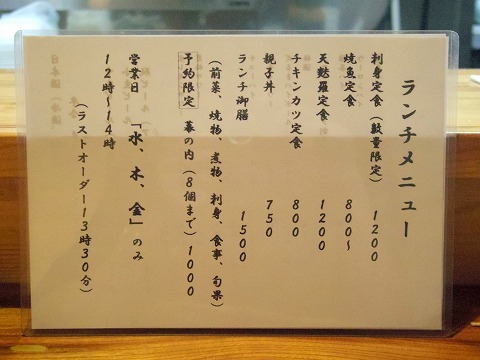 ランチメニュー
刺身定食（数量限定）　1200
焼魚定食　800～
天麩羅定食　1200
チキンカツ定食　800
親子丼　750
ランチ御膳　1500
（前菜、焼物、煮物、刺身、食事、旬果）
予約限定　幕の内（8個まで）1000
営業日　「水、木、金」のみ
12時～14時
（ラストオーダー13時30分）